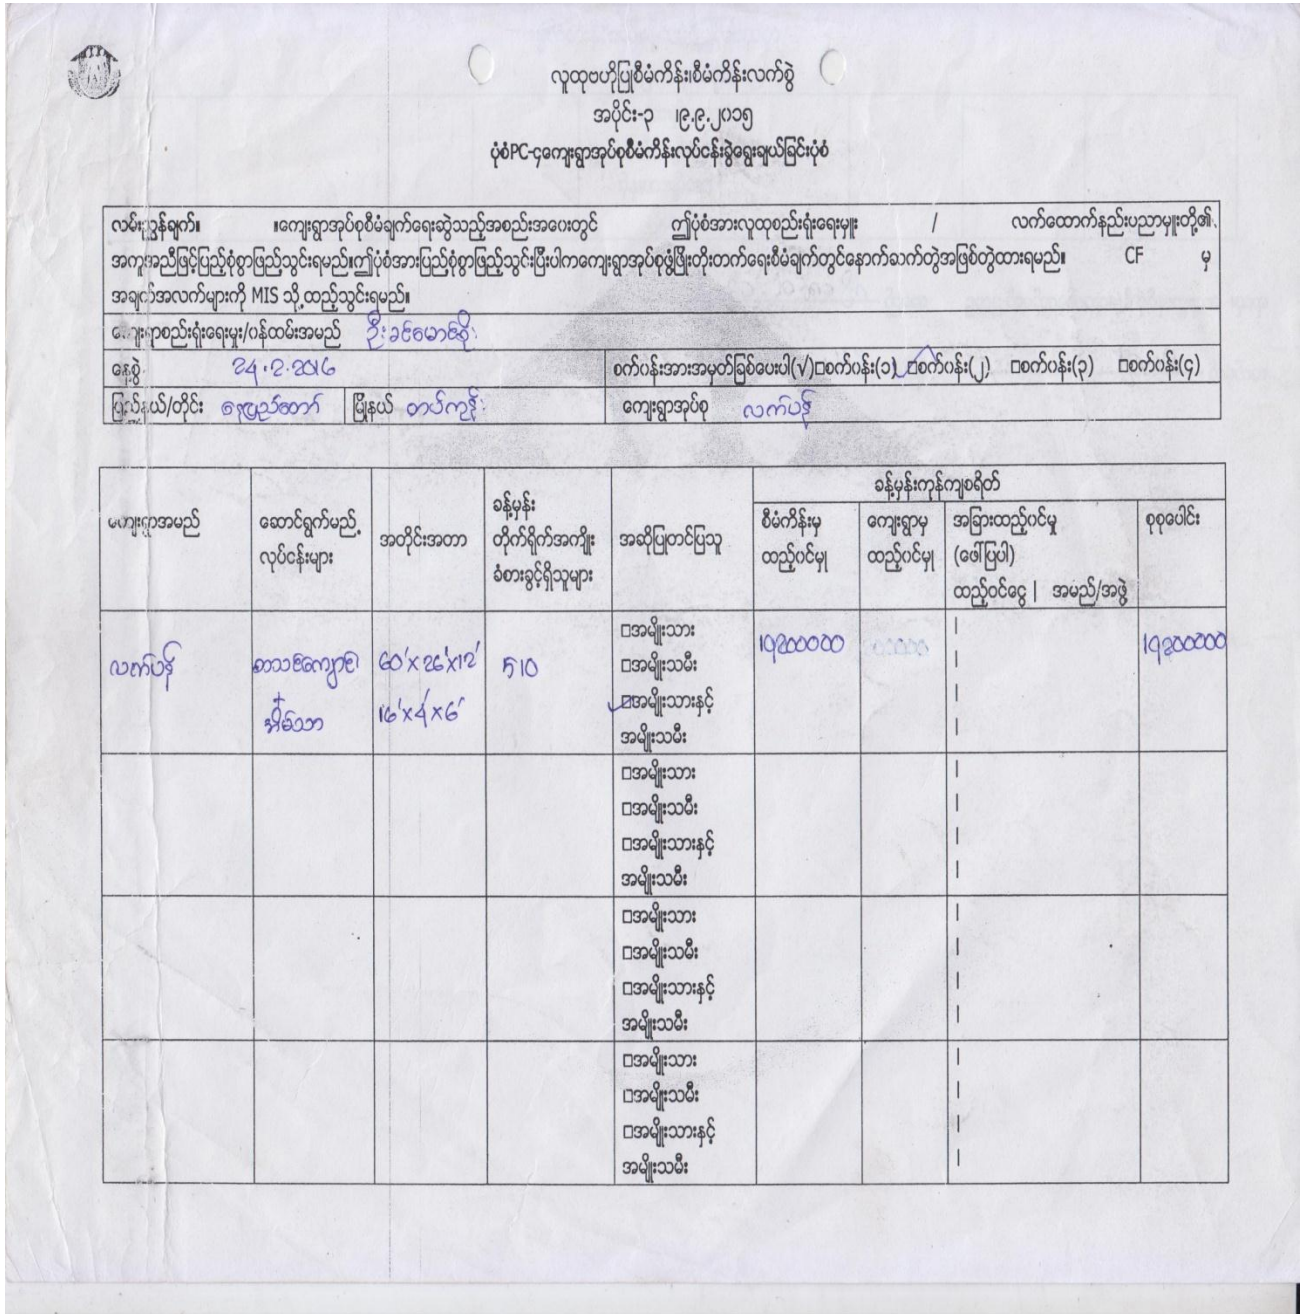 လူထုဗဟိုပြုစီမံကိန်း၊စီမံကိန်းလက်စွဲ
အပိုင်း-၃ ၊၉.၉.၂၀၁၅
ပုံစံPC-၄ကျေးရွာအုပ်စုစီမံကိန်းလုပ်ငန်းခွဲရွေးချယ်ခြင်းပုံစံ
လမ်းညွှန်ချက်။ ။ကျေးရွာအုပ်စုစီမံချက်ရေးဆွဲသည့်အစည်းအဝေးတွင် ဤပုံစံအားလူထုစည်းရုံးရေးမှူး / လက်ထောက်နည်းပညာမှူးတို့၏
အကူအညီဖြင့်ပြည့်စုံစွာဖြည့်သွင်းရမည်။ဤပုံစံအားပြည့်စုံစွာဖြည့်သွင်းပြီးပါကကျေးရွာအုပ်စုဖွံ့ဖြိုးတိုးတက်ရေးစီမံချက်တွင်နောက်ဆက်တွဲအဖြစ်တွဲထားရမည်။ CF မှ
အချက်အလက်များကို MIS သို့ထည့်သွင်းရမည်။
ကျေးရွာစည်းရုံးရေးမှူး/ဝန်ထမ်းအမည် ဦးခင်မောင်စိုး
နေ့စွဲ 24.2.2016 စက်ဝန်းအားအမှတ်ခြစ်ပေးပါ(√)□စက်ဝန်း(၁) □စက်ဝန်း(၂) □စက်ဝန်း(၃) □စက်ဝန်း(၄)
ပြည်နယ်/တိုင်း နေပြည်တော် မြို့နယ် တပ်ကုန်း ကျေးရွာအုပ်စု လက်ပန်
ခန့်မှန်းကုန်ကျစရိတ်
ကျေးရွာအမည် ဆောင်ရွက်မည့် လုပ်ငန်းများ အတိုင်းအတာ ခန့်မှန်း တိုက်ရိုက်အကျိုး ခံစားခွင့်ရှိသူများ အဆိုပြုတင်ပြသူ စီမံကိန်းမှ ထည့်ဝင်မှု ကျေးရွာမှ ထည့်ဝင်မှု အခြားထည့်ဝင်မှု (ဖေါ်ပြပါ) ထည့်ဝင်ငွေ | အမည်/အဖွဲ့ စုစုပေါင်း
လက်ပန် စာသင်ကျောင်း + အိမ်သာ 60'x26'x12' 16'x4'x6' 510
□အမျိုးသား
□အမျိုးသမီး
□အမျိုးသားနှင့်
အမျိုးသမီး
□အမျိုးသား
□အမျိုးသမီး
□အမျိုးသားနှင့်
အမျိုးသမီး
□အမျိုးသား
□အမျိုးသမီး
□အမျိုးသားနှင့်
အမျိုးသမီး
□အမျိုးသား
□အမျိုးသမီး
□အမျိုးသားနှင့်
အမျိုးသမီး